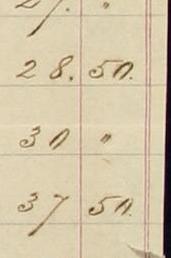 27. "
28. 50.
30 "
37 50.